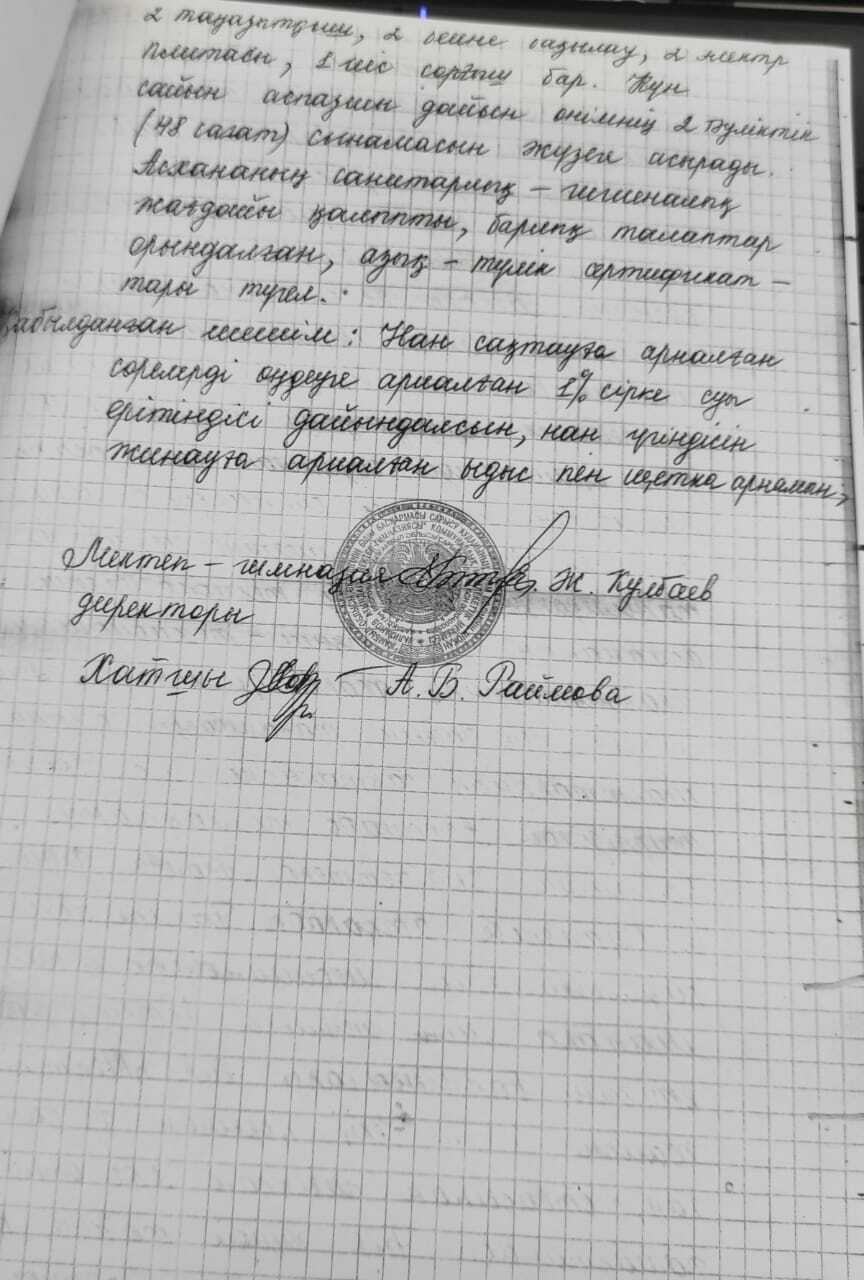 2 таңазытқыш, 2 бейне бақылау, 2 электр
плитасы, 1 иіс сорғыш бар. Күн
сайын аспазшы дайын өнімнің 2 тәуліктік
(48 сағат) сынамасын жүзеге асырады.
Асхананың санитарлық – гигиеналық
жағдайы қалыпты, барлық талаптар
орындалған, азық – түлік сертификат –
тары түгел.
Қабылданған шешім: Нан сақтауға арналған
сөрелерді өңдеуге арналған 1% сірке суы
ерітіндісі дайындалсын, нан үгіндісін
жинауға арналған ыдыс пен щетка арналсын,
Мектеп – гимназия Ж. Кулбаев
директоры
Хатшы А. Б. Раймова